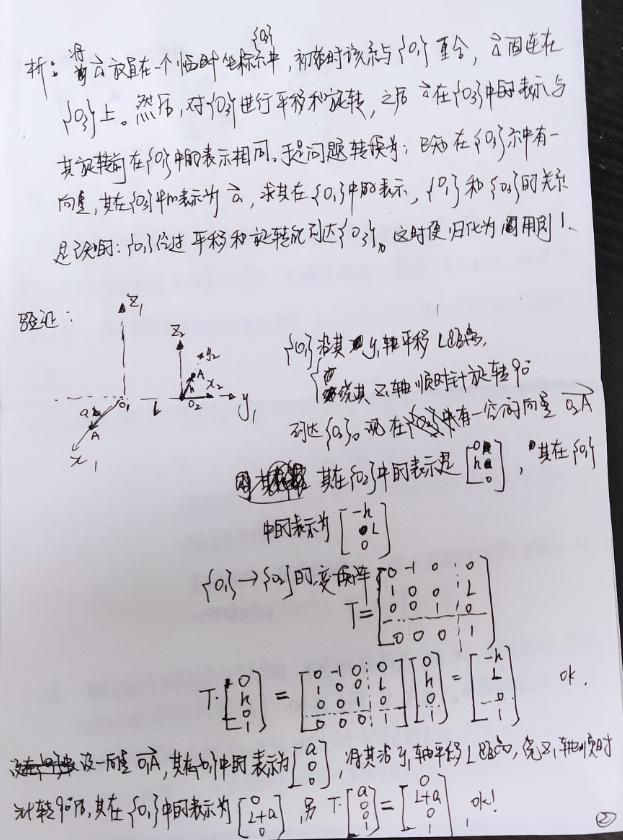 析：将 a 放置在一个临时坐标系{O3}中，初始时该系与{O1}重合，a 固连在
{O3}上。然后，对{O3}进行平移和旋转，之后 a 在{O3}中的表示与
其旋转前在{O1}中的表示相同。于是问题转换为：已知在{O3}系中有一
向量，其在{O3}中的表示为 a，求其在{O1}中的表示，{O1}和{O3}的关系
是已知的：{O1}经过平移和旋转能到达{O3}。这时便归化为用例1。
验证：
Z1
Z2
y2
A
x2
O1
L
O2
y1
a
A
h
x1
{O1}沿其y1轴平移L距离，
绕其Z1轴顺时针旋转90°
到达{O2}。现在有一空间向量 O2A
其在{O2}中的表示是 [0 h 0]，其在{O1}
中的表示为 [-h L 0]
{O1}→{O2}的变换阵
T = [0 -1 0 0
1 0 0 L
0 0 1 0
0 0 0 1]
T·[0 h 0 1] = [0 -1 0 0; 1 0 0 L; 0 0 1 0; 0 0 0 1] [0 h 0 1] = [-h L 0 1] ok.
设一向量 O1A，其在{O1}中的表示为 [a 0 0]，将其沿y1轴平移L距离，绕Z1轴顺时
针转90°后，其在{O1}中的表示为 [0 L+a 0]，另 T·[a 0 0 1] = [0 L+a 0 1]，ok!
②